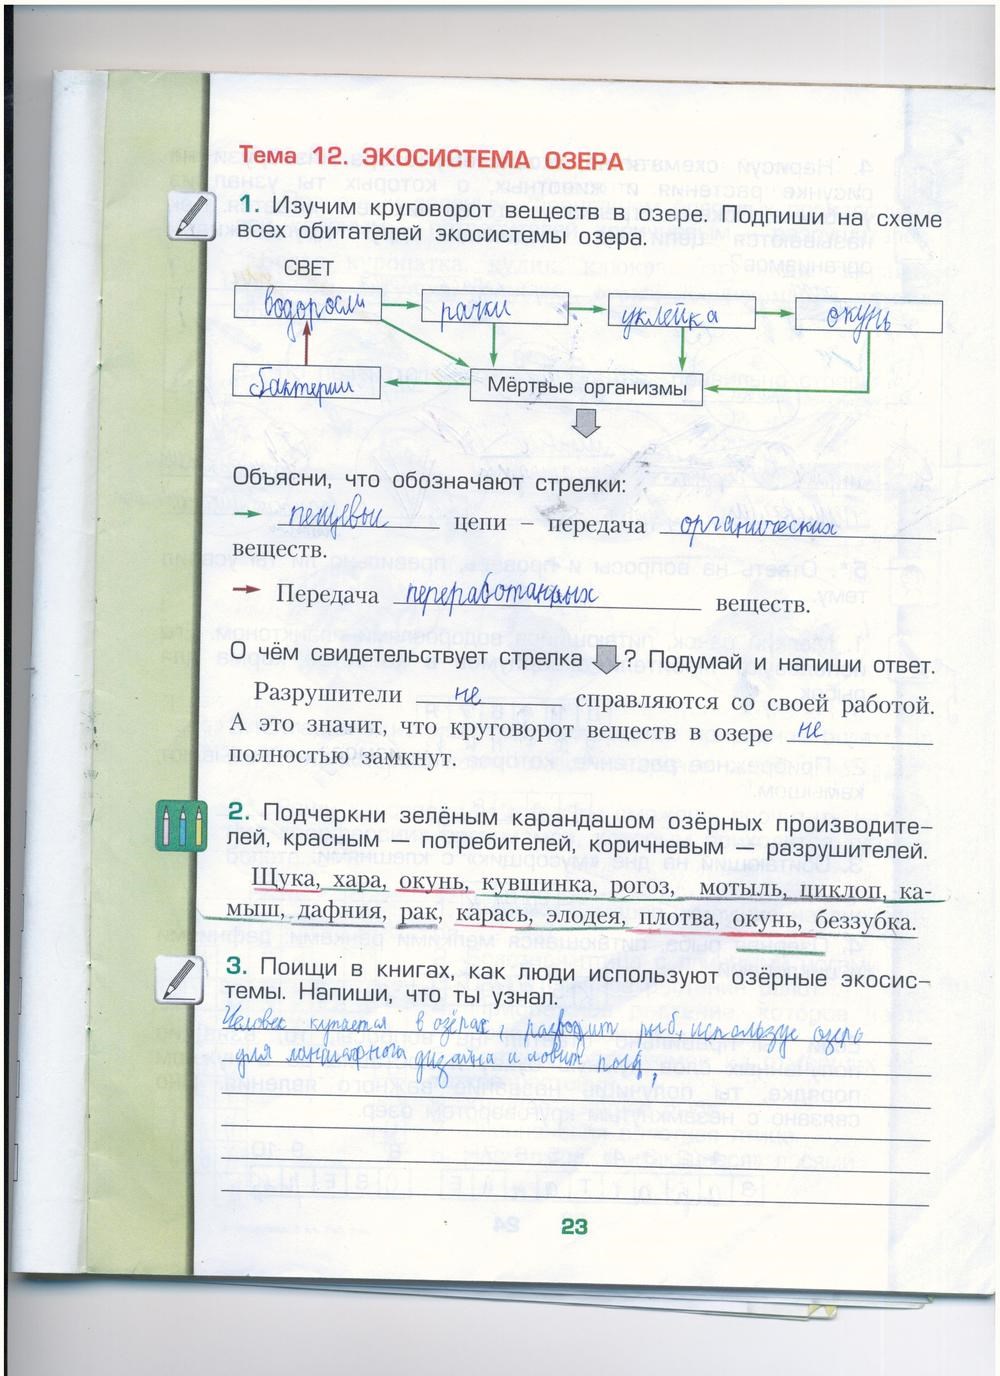 Тема 12. ЭКОСИСТЕМА ОЗЕРА
1. Изучим круговорот веществ в озере. Подпиши на схеме
всех обитателей экосистемы озера.
СВЕТ
водоросли рачки уклейка окунь
бактерии Мёртвые организмы
Объясни, что обозначают стрелки:
пищевые цепи – передача органических
веществ.
Передача переработанных веществ.
О чём свидетельствует стрелка ? Подумай и напиши ответ.
Разрушители не справляются со своей работой.
А это значит, что круговорот веществ в озере не
полностью замкнут.
2. Подчеркни зелёным карандашом озёрных производите-
лей, красным — потребителей, коричневым — разрушителей.
Щука, хара, окунь, кувшинка, рогоз, мотыль, циклоп, ка-
мыш, дафния, рак, карась, элодея, плотва, окунь, беззубка.
3. Поищи в книгах, как люди используют озёрные экосис-
темы. Напиши, что ты узнал.
Человек купается в озёрах, разводит рыб, используе озёр
для дизайна и ловит
23